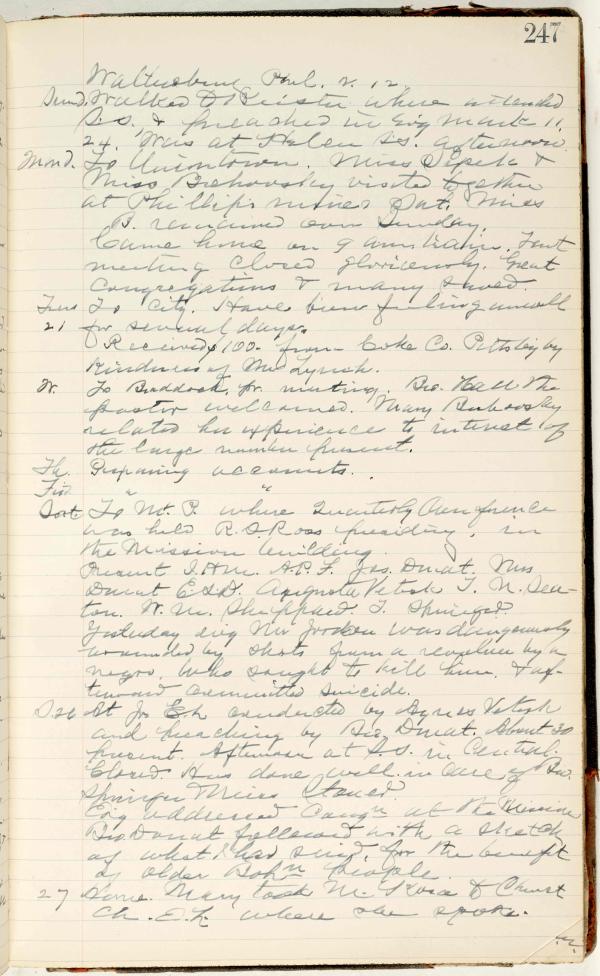 247
Phil. 2. 12.
Sund. Walked to Keister where attended
S.S. & preached in Evg Mark 11.
24. Was at Helen S.S. afternoon.
Mond. To Uniontown. Miss &
Miss visited together
at Phillips mines Sat. Miss
B. remained over Sunday.
Came home on 9 am train. Tent
meeting closed gloriously. Great
congregations & many saved.
Tues To City. Have been feeling unwell
21 for several days.
Received $100. from Coke Co. Pittsbg by
kindness of Mr Lynch.
W. To Braddock, for meeting. Bro. Hall the
pastor welcomed. Mary
related her experience to interest of
the large number present.
Th. Preparing accounts.
Frid. " "
Sat To Mt. P. where Quarterly Conference
was held R. S. Ross presiding, in
the Mission building.
Present A.P.F. Jas. Donat. Mrs
Donat Augusta T. N. Sea-
ton. W. M. Sheppard. T. Springer.
Yesterday evg Mr was dangerously
wounded by shots from a revolver by a
negro, who sought to kill him, & af-
terward committed suicide.
S. 26 At Jr E.L. conducted by
and preaching by Bro. Donat. About 30
present. Afternoon at S.S. in Central.
Closed. Has done well in care of Bro.
Springer Miss
Evg addressed Congn at the Mission
Bro. Donat followed with a sketch
of what I had said, for the benefit
of older Bohn people.
27 Home. Mary took M. to Christ
Ch. E.L. where she spoke.